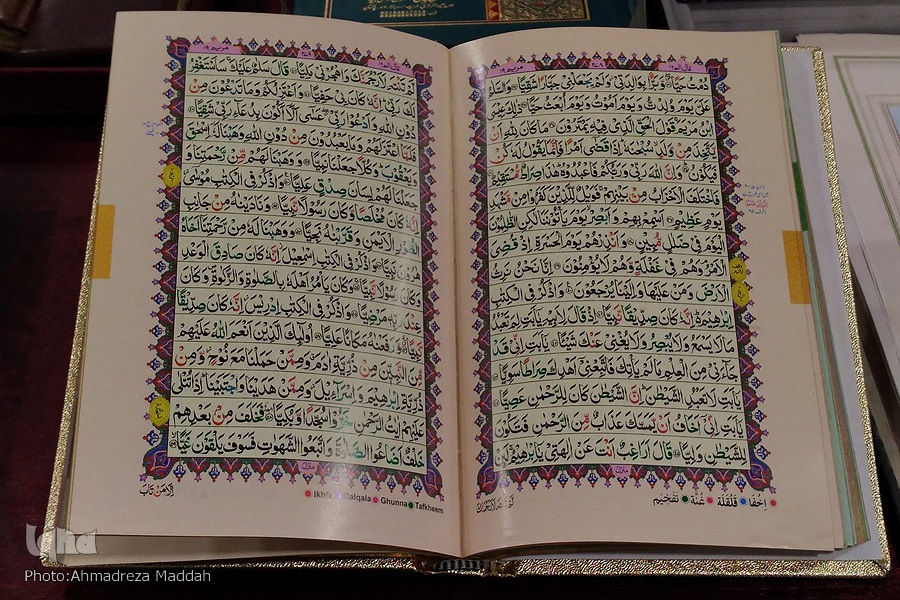 قال الم ۱۶
مریم ۱۹
دُمْتُ حَيًّا وَّبَرًّۢا بِوَالِدَتِيْ وَلَمْ يَجْعَلْنِيْ جَبَّارًا شَقِيًّا وَالسَّلٰمُ
عَلَيَّ يَوْمَ وُلِدْتُّ وَيَوْمَ اَمُوْتُ وَيَوْمَ اُبْعَثُ حَيًّا ذٰلِكَ عِيْسَى
ابْنُ مَرْيَمَ قَوْلَ الْحَقِّ الَّذِيْ فِيْهِ يَمْتَرُوْنَ مَا كَانَ لِلّٰهِ اَنْ
يَّتَّخِذَ مِنْ وَّلَدٍ سُبْحٰنَهٗ اِذَا قَضٰى اَمْرًا فَاِنَّمَا يَقُوْلُ لَهٗ كُنْ
فَيَكُوْنُ وَاِنَّ اللّٰهَ رَبِّيْ وَرَبُّكُمْ فَاعْبُدُوْهُ هٰذَا صِرَاطٌ مُّسْتَقِيْمٌ
فَاخْتَلَفَ الْاَحْزَابُ مِنْۢ بَيْنِهِمْ فَوَيْلٌ لِّلَّذِيْنَ كَفَرُوْا مِنْ مَّشْهَدِ
يَوْمٍ عَظِيْمٍ اَسْمِعْ بِهِمْ وَاَبْصِرْ يَوْمَ يَاْتُوْنَنَا لٰكِنِ الظّٰلِمُوْنَ
الْيَوْمَ فِيْ ضَلٰلٍ مُّبِيْنٍ وَاَنْذِرْهُمْ يَوْمَ الْحَسْرَةِ اِذْ قُضِيَ
الْاَمْرُ وَهُمْ فِيْ غَفْلَةٍ وَّهُمْ لَا يُؤْمِنُوْنَ اِنَّا نَحْنُ نَرِثُ
الْاَرْضَ وَمَنْ عَلَيْهَا وَاِلَيْنَا يُرْجَعُوْنَ وَاذْكُرْ فِي الْكِتٰبِ
اِبْرٰهِيْمَ اِنَّهٗ كَانَ صِدِّيْقًا نَّبِيًّا اِذْ قَالَ لِاَبِيْهِ يٰٓاَبَتِ لِمَ تَعْبُدُ
مَا لَا يَسْمَعُ وَلَا يُبْصِرُ وَلَا يُغْنِيْ عَنْكَ شَيْئًا يٰٓاَبَتِ اِنِّيْ قَدْ
جَآءَنِيْ مِنَ الْعِلْمِ مَا لَمْ يَاْتِكَ فَاتَّبِعْنِيْٓ اَهْدِكَ صِرَاطًا سَوِيًّا
يٰٓاَبَتِ لَا تَعْبُدِ الشَّيْطٰنَ اِنَّ الشَّيْطٰنَ كَانَ لِلرَّحْمٰنِ عَصِيًّا
يٰٓاَبَتِ اِنِّيْٓ اَخَافُ اَنْ يَّمَسَّكَ عَذَابٌ مِّنَ الرَّحْمٰنِ فَتَكُوْنَ
لِلشَّيْطٰنِ وَلِيًّا قَالَ اَرَاغِبٌ اَنْتَ عَنْ اٰلِهَتِيْ يٰٓاِبْرٰهِيْمُ لَئِنْ
منزل
اخفا قلقلة غنة تفخيم
قال الم ۱۶
مریم ۱۹
لَّمْ تَنْتَهِ لَاَرْجُمَنَّكَ وَاهْجُرْنِيْ مَلِيًّا قَالَ سَلٰمٌ عَلَيْكَ سَاَسْتَغْفِرُ
لَكَ رَبِّيْ اِنَّهٗ كَانَ بِيْ حَفِيًّا وَاَعْتَزِلُكُمْ وَمَا تَدْعُوْنَ مِنْ
دُوْنِ اللّٰهِ وَاَدْعُوْا رَبِّيْ عَسٰٓى اَلَّآ اَكُوْنَ بِدُعَآءِ رَبِّيْ شَقِيًّا
فَلَمَّا اعْتَزَلَهُمْ وَمَا يَعْبُدُوْنَ مِنْ دُوْنِ اللّٰهِ وَهَبْنَا لَهٗٓ اِسْحٰقَ
وَيَعْقُوْبَ وَكُلًّا جَعَلْنَا نَبِيًّا وَوَهَبْنَا لَهُمْ مِّنْ رَّحْمَتِنَا وَ
جَعَلْنَا لَهُمْ لِسَانَ صِدْقٍ عَلِيًّا وَاذْكُرْ فِي الْكِتٰبِ مُوْسٰٓى
اِنَّهٗ كَانَ مُخْلَصًا وَّكَانَ رَسُوْلًا نَّبِيًّا وَنَادَيْنٰهُ مِنْ جَانِبِ
الطُّوْرِ الْاَيْمَنِ وَقَرَّبْنٰهُ نَجِيًّا وَوَهَبْنَا لَهٗ مِنْ رَّحْمَتِنَآ اَخَاهُ
هٰرُوْنَ نَبِيًّا وَاذْكُرْ فِي الْكِتٰبِ اِسْمٰعِيْلَ اِنَّهٗ كَانَ صَادِقَ الْوَعْدِ
وَكَانَ رَسُوْلًا نَّبِيًّا وَكَانَ يَاْمُرُ اَهْلَهٗ بِالصَّلٰوةِ وَالزَّكٰوةِ وَكَانَ
عِنْدَ رَبِّهٖ مَرْضِيًّا وَاذْكُرْ فِي الْكِتٰبِ اِدْرِيْسَ اِنَّهٗ كَانَ صِدِّيْقًا
نَّبِيًّا وَّرَفَعْنٰهُ مَكَانًا عَلِيًّا اُولٰٓئِكَ الَّذِيْنَ اَنْعَمَ اللّٰهُ عَلَيْهِمْ
مِّنَ النَّبِيّٖنَ مِنْ ذُرِّيَّةِ اٰدَمَ وَمِمَّنْ حَمَلْنَا مَعَ نُوْحٍ وَّمِنْ
ذُرِّيَّةِ اِبْرٰهِيْمَ وَاِسْرَآءِيْلَ وَمِمَّنْ هَدَيْنَا وَاجْتَبَيْنَا اِذَا تُتْلٰى
عَلَيْهِمْ اٰيٰتُ الرَّحْمٰنِ خَرُّوْا سُجَّدًا وَّبُكِيًّا فَخَلَفَ مِنْۢ بَعْدِهِمْ
خَلْفٌ اَضَاعُوا الصَّلٰوةَ وَاتَّبَعُوا الشَّهَوٰتِ فَسَوْفَ يَلْقَوْنَ غَيًّا
منزل
اِلَّا مَنْ تَابَ
Ikhfa Qalqala Ghunna Tafkheem
iqna
Photo:Ahmadreza Maddah